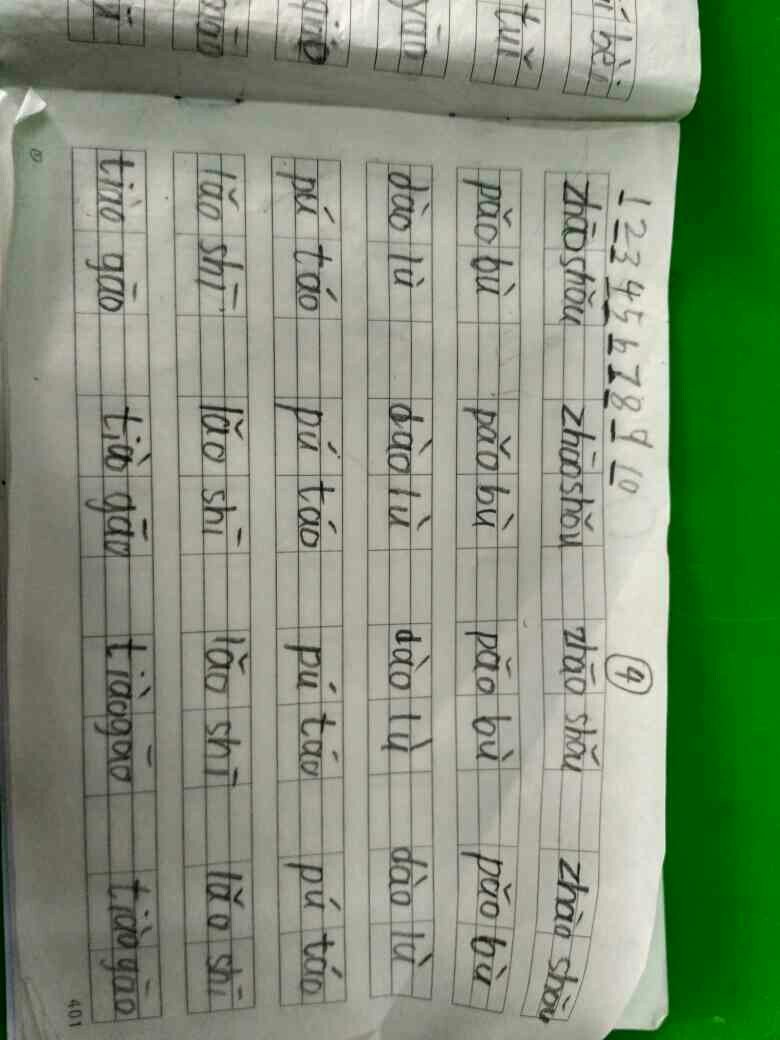 1 2 3 4 5 6 7 8 9 10 ⑨
zhāoshǒu zhāoshǒu zhāo shǒu zhāo shǒu
pǎo bù pǎo bù pǎo bù pǎo bù
dào lù dào lù dào lù dào lù
pú táo pú táo pú táo pú táo
lǎo shī lǎo shī lǎo shī lǎo shī
tiào gāo tiào gāo tiàogāo tiào gāo
401